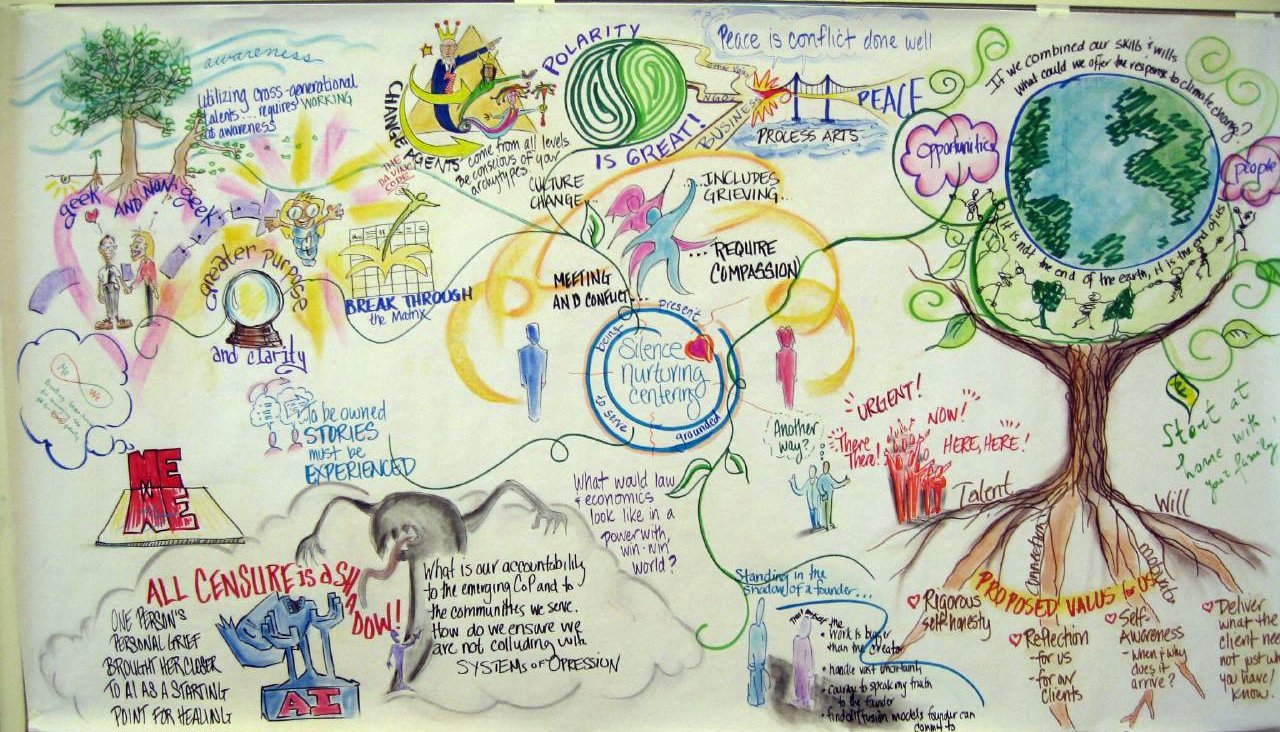 awareness
Utilizing cross-generational
talents.... requires WORKING
at awareness
geek
AND NON-geek...
greater purpose
and clarity
THE
DA VINCI
CODE
BREAK THROUGH
the Matrix
CHANGE AGENTS
come from all levels.
Be conscious of your
archetypes.
POLARITY
IS GREAT!
NGO
BUSINESS
Peace is conflict done well
PEACE
PROCESS ARTS
If we combined our skills & wills
What could we offer the response to climate change?
Opportunities
people
It is not the end of the earth, it is the end of us
CULTURE
CHANGE...
...INCLUDES
GRIEVING...
...REQUIRE
COMPASSION
MEETING
AND CONFLICT...
being
present
Silence
nurturing
centering
to serve
grounded
Me
We
To be owned
STORIES
must be
EXPERIENCED
ME
ME
ALL CENSURE is a SHADOW!
ONE PERSON'S
PERSONAL GRIEF
BROUGHT HER CLOSER
TO AI AS A STARTING
POINT FOR HEALING
AI
What is our accountability
to the emerging CoP and to
the communities we serve.
How do we ensure we
are not colluding with
SYSTEMS of OPRESSION
What would law
& economics
look like in a
power with,
win-win
world?
Another
way?
URGENT!
There
There!
NOW!
HERE, HERE!
Standing in the
shadow of a founder...
• Work is bigger
than the creator
• handle vast uncertainty
• courage to speak my truth
to the founder
• find diffusion models founder can
commit to
Start at
home with
your family!
Talent
Will
Connection
PROPOSED VALUS for US
Rigorous
self-honesty
Reflection
- for us
- for our
clients
Self-
Awareness
- when & why
does it
arrive?
Deliver
what the
client
not just
you have/
know.